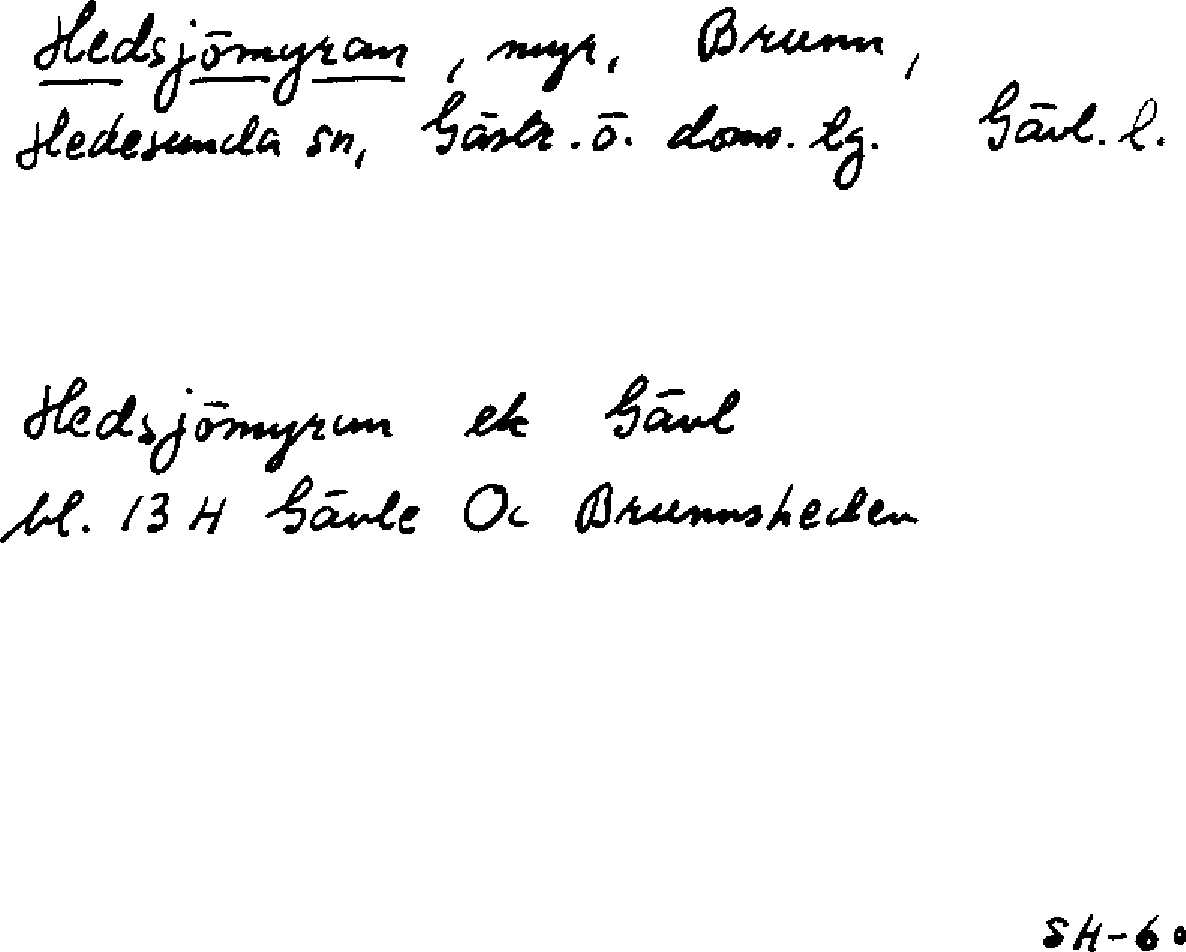 Hedsjömyran, myr, Brunn,
Hedesunda sn, Gästr. ö. doms. lg. Gävl. l.
Hedsjömyran ek Gävl
bl. 13 H Gävle 0c Brunnsheden
SH-60